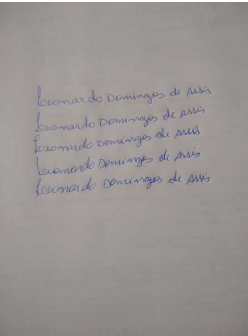 Leonardo Domingos de Assis
Leonardo Domingos de Assis
Leonardo Domingos de Assis
Leonardo Domingos de Assis
Leonardo Domingos de Assis